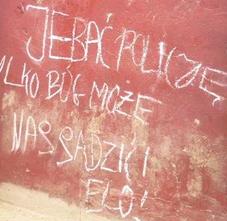 JEBAĆ POLICZĘ
YLKO BÓG MOŻE
WAS SĄDZIĆ I
ELO!